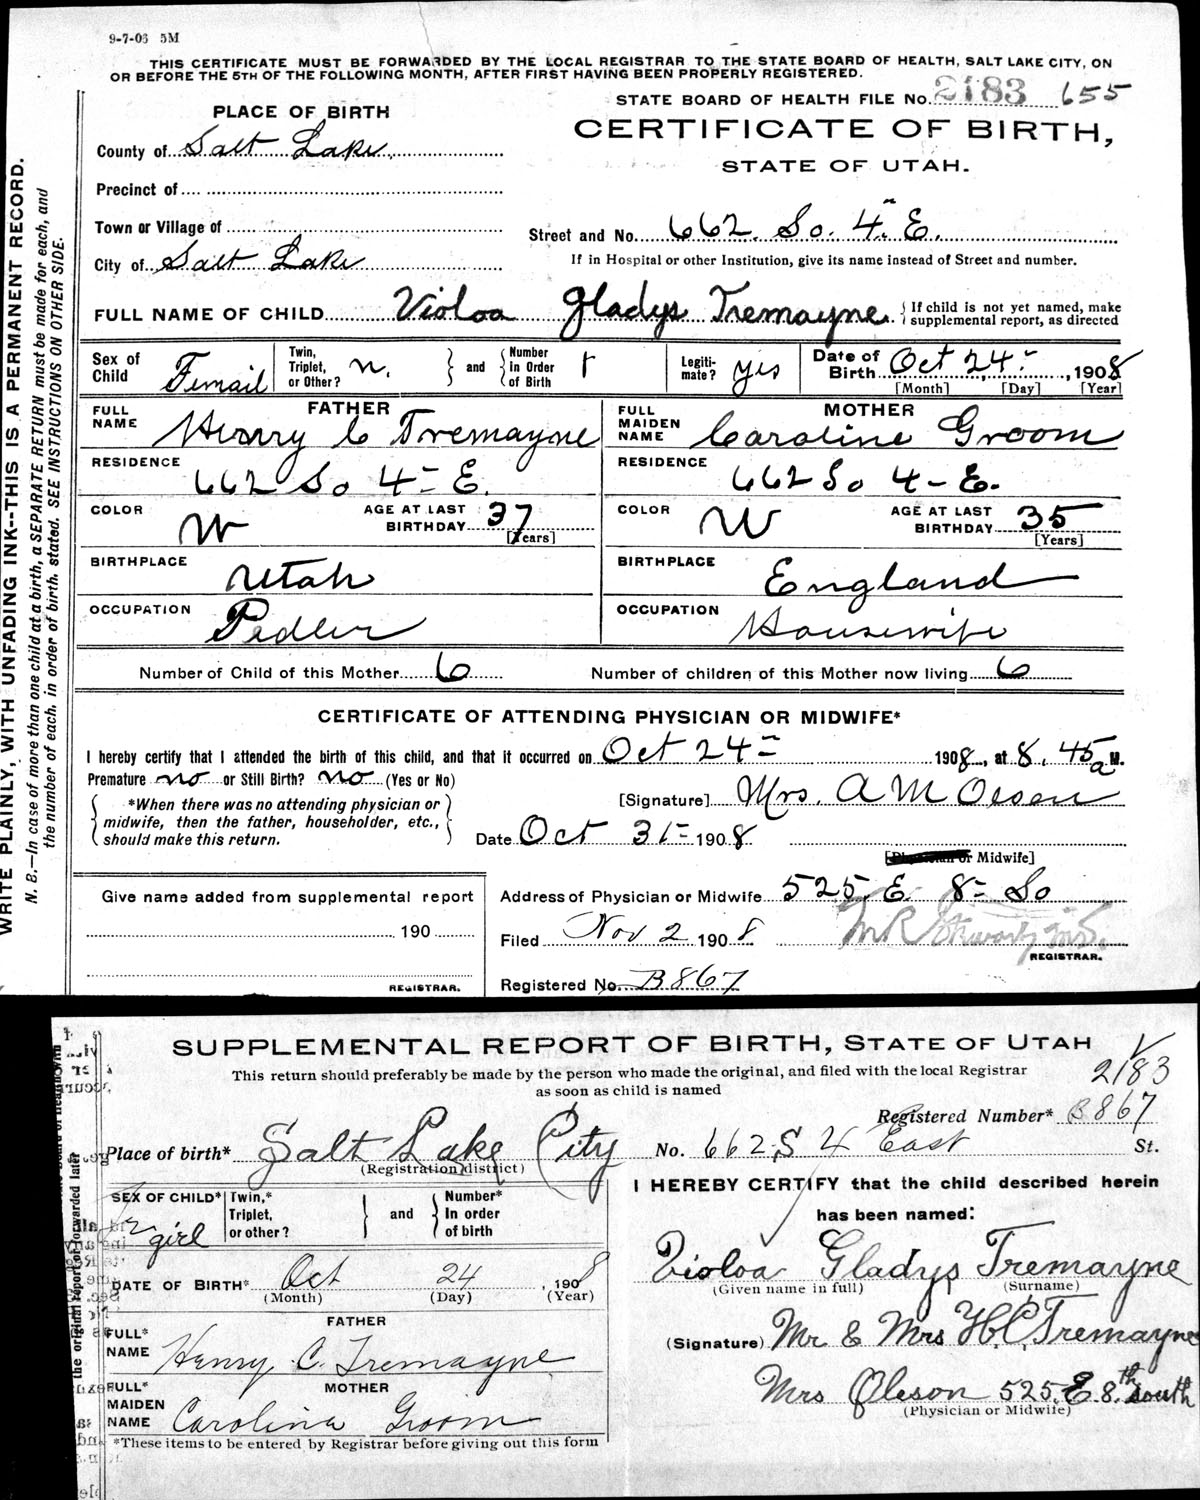 9-7-06 5M
THIS CERTIFICATE MUST BE FORWARDED BY THE LOCAL REGISTRAR TO THE STATE BOARD OF HEALTH, SALT LAKE CITY, ON
OR BEFORE THE 5TH OF THE FOLLOWING MONTH, AFTER FIRST HAVING BEEN PROPERLY REGISTERED.
STATE BOARD OF HEALTH FILE No. 2183 655
PLACE OF BIRTH
CERTIFICATE OF BIRTH,
STATE OF UTAH.
County of Salt Lake
Precinct of
Town or Village of
Street and No. 662 So. 4" E.
City of Salt Lake
If in Hospital or other Institution, give its name instead of Street and number.
FULL NAME OF CHILD Violoa Gladys Tremayne { If child is not yet named, make supplemental report, as directed
Sex of Child Femail Twin, Triplet, or Other? n. } and { Number In Order of Birth 1 Legiti-mate? yis Date of Birth Oct 24, 1908
[Month] [Day] [Year]
FATHER
FULL NAME Henry C Tremayne
RESIDENCE 662 So 4- E.
COLOR W AGE AT LAST BIRTHDAY 37 [Years]
BIRTHPLACE Utah
OCCUPATION Pedler
MOTHER
FULL MAIDEN NAME Caroline Groom
RESIDENCE 662 So 4- E.
COLOR W AGE AT LAST BIRTHDAY 35 [Years]
BIRTHPLACE England
OCCUPATION Housewife
Number of Child of this Mother 6 Number of children of this Mother now living 6
CERTIFICATE OF ATTENDING PHYSICIAN OR MIDWIFE*
I hereby certify that I attended the birth of this child, and that it occurred on Oct 24- 1908, at 8.45 a M.
Premature no or Still Birth? no (Yes or No)
{ *When there was no attending physician or midwife, then the father, householder, etc., should make this return. }
[Signature] Mrs. A M Olsen
Date Oct 31- 1908
[Physician or Midwife]
Give name added from supplemental report
190
REGISTRAR.
Address of Physician or Midwife 525 E. 8- So
Filed Nov 2 1908
REGISTRAR.
Registered No. B867
WRITE PLAINLY, WITH UNFADING INK--THIS IS A PERMANENT RECORD.
N. B.—In case of more than one child at a birth, a SEPARATE RETURN must be made for each, and
the number of each, in order of birth, stated. SEE INSTRUCTIONS ON OTHER SIDE.
SUPPLEMENTAL REPORT OF BIRTH, STATE OF UTAH
This return should preferably be made by the person who made the original, and filed with the local Registrar
as soon as child is named
2183
Registered Number* B867
Place of birth* Salt Lake City No. 662 S 4 East St.
(Registration district)
SEX OF CHILD* girl Twin,* Triplet, or other? } and { Number* In order of birth
DATE OF BIRTH* Oct 24, 1908
(Month) (Day) (Year)
FATHER
FULL* NAME Henry C. Tremayne
MOTHER
FULL* MAIDEN NAME Carolina Groom
*These items to be entered by Registrar before giving out this form
I HEREBY CERTIFY that the child described herein
has been named:
Violoa Gladys Tremayne
(Given name in full) (Surname)
(Signature) Mr & Mrs H.C. Tremayne
Mrs Oleson 525. E 8.th south
(Physician or Midwife)
the original report of